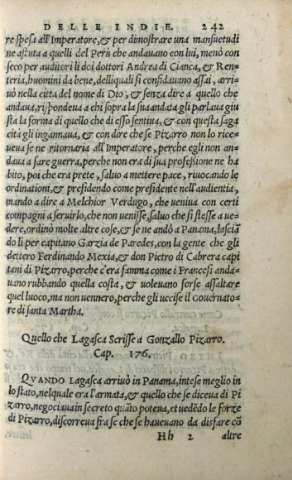 DELLE INDIE. 242
re spesa all'Imperatore, & per dimostrare una mansuetudi
ne astuta a quelli del Perù che andauano con lui, menò con
seco per auditori li doi dottori Andrea di Cianca, & Ren-
teria, huomini da bene, delliquali si confidauano assai, arri-
uò nella città del nome di Dio, & senza dire a quello che
andaua, rispondeua a chi sopra la sua andata gli parlaua giu
sta la forma di quello che di esso sentiua, & con questa saga
cità gli ingannaua, & con dire che se Pizarro non lo rice-
ueua se ne ritornaria all'Imperatore, perche egli non an-
daua a fare guerra, perche non era di sua professione ne ha
bito, poi che era prete, saluo a mettere pace, riuocando le
ordinationi, & presidendo come presidente nell'audientia,
mandò a dire a Melchior Verdugo, che ueniua con certi
compagni a seruirlo, che non uenisse, saluo che si stesse a ue-
dere, ordinò molte altre cose, & se ne andò a Panama, lascia
do li per capitano Garzia de Paredes, con la gente che gli
dettero Ferdinando Mexia, & don Pietro di Cabrera capi
tani di Pizarro, perche c'era famma come i Francesi anda-
uano rubbando quella costa, & uoleuano forse assaltare
quel luoco, ma non uennero, perche gli uccise il Gouernato-
re di santa Martha.
Quello che Lagasca Scrisse a Gonzallo Pizarro.
Cap. 176.
QVANDO Lagasca arriuò in Panama, intese meglio in
lo stato, nel quale era l'armata, & quello che si diceua di Pi
zarro, negociaua in secreto quãto poteua, et uedẽdo le forze
di Pizarro, discorreua fra se che se haueuano da disfare cõ
Hh 2 altre